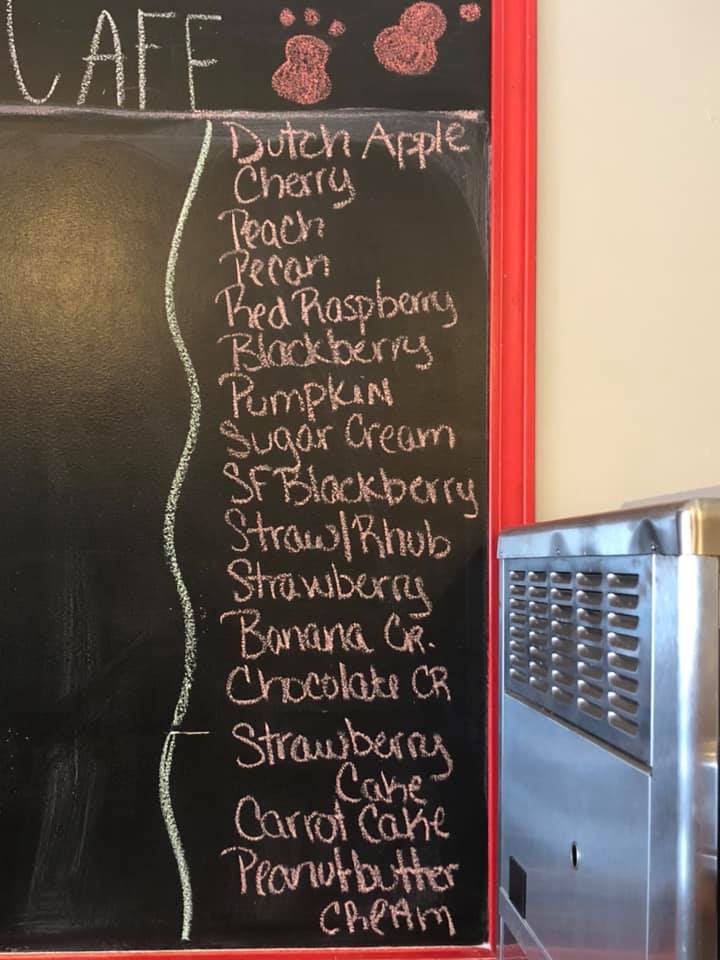 CAFE
Dutch Apple
Cherry
Peach
Pecan
Red Raspberry
Blackberry
Pumpkin
Sugar Cream
SF Blackberry
Straw/Rhub
Strawberry
Banana CR.
Chocolate CR
Strawberry
Cake
Carrot Cake
Peanutbutter
CReAm